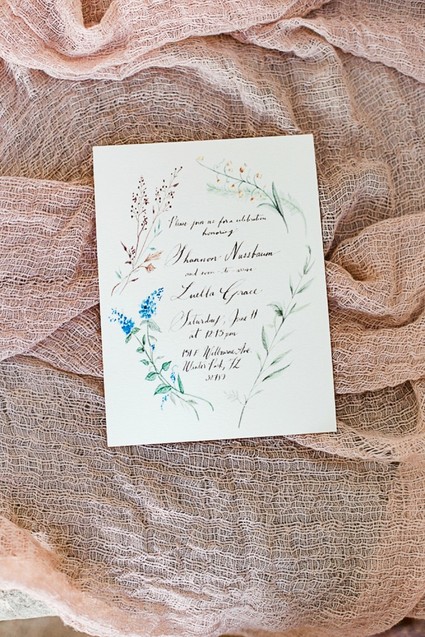 Please join us for a celebration
honoring
Shannon Nussbaum
and soon-to-arrive
Luella Grace
Saturday, June 11
at 12:45 pm
Ave
Winter Park, FL